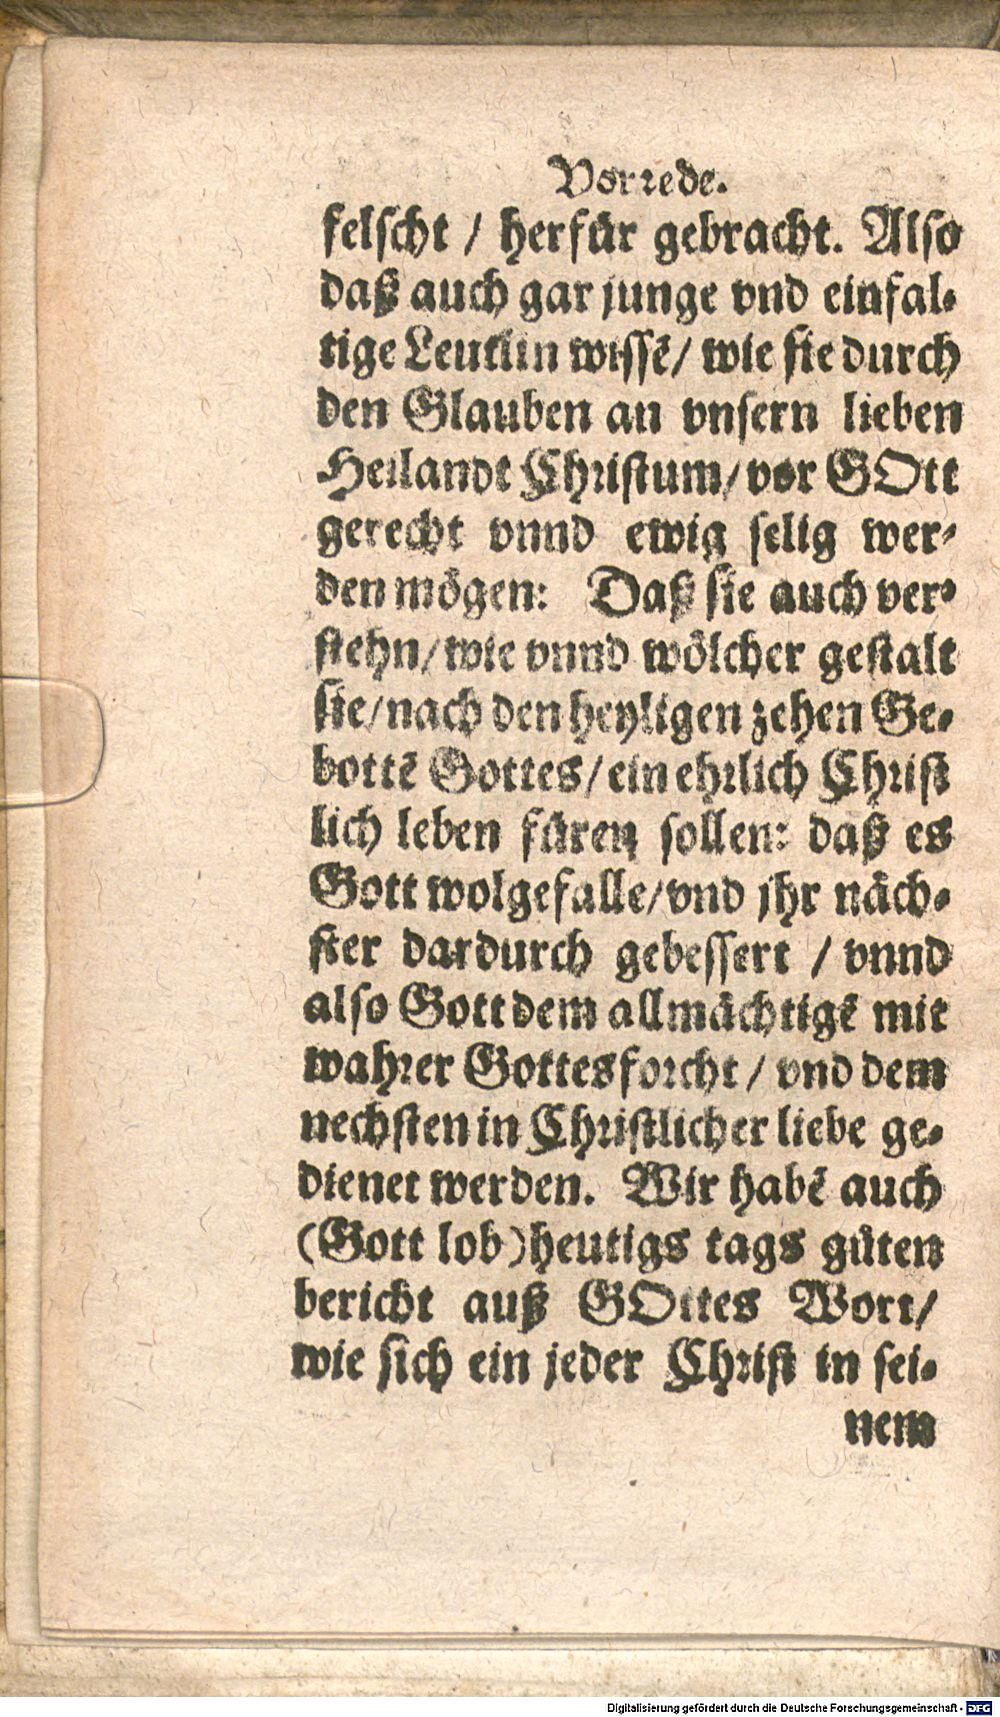 Vorrede.
felscht / herfür gebracht. Also
daß auch gar junge vnd einfal-
tige Leutlin wissẽ/ wie sie durch
den Glauben an vnsern lieben
Heilandt Christum/ vor GOtt
gerecht vnnd ewig selig wer-
den mögen: Daß sie auch ver-
stehn/ wie vnnd wölcher gestalt
sie/ nach den heyligen zehen Ge-
bottẽ Gottes/ ein ehrlich Christ
lich leben füren sollen: daß es
Gott wolgefalle/ vnd jhr näch-
ster dardurch gebessert / vnnd
also Gott dem allmächtigẽ mit
wahrer Gottesforcht / vnd dem
nechsten in Christlicher liebe ge-
dienet werden. Wir habẽ auch
(Gott lob) heutigs tags gůten
bericht auß GOttes Wort/
wie sich ein jeder Christ in sei-
nem
Digitalisierung gefördert durch die Deutsche Forschungsgemeinschaft - DFG